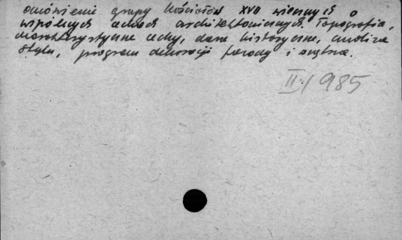 omówienie grupy kościołów XVII wiecznych o
wspólnych cechach architektonicznych. Topografia,
charakterystyczne cechy, dane historyczne, analiza
stylu, program dekoracji fasady i wnętrza.
II 1985